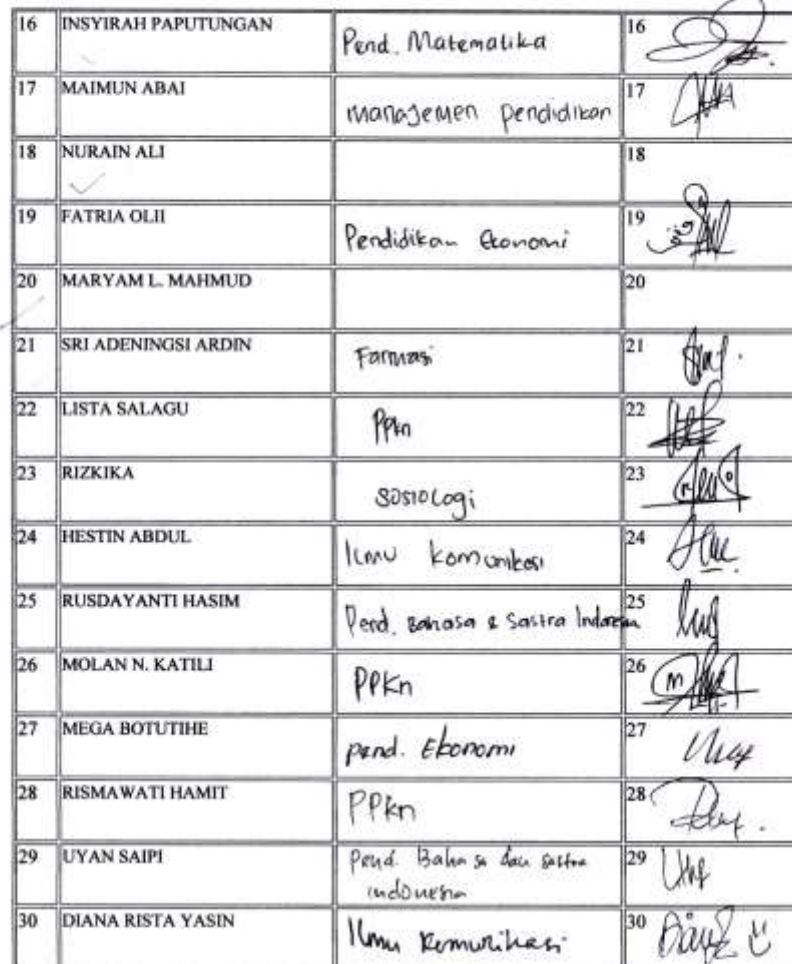 16 INSYIRAH PAPUTUNGAN Pend. Matematika 16
17 MAIMUN ABAI manajemen pendidikan 17
18 NURAIN ALI 18
19 FATRIA OLII Pendidikan Ekonomi 19
20 MARYAM L. MAHMUD 20
21 SRI ADENINGSI ARDIN Farmasi 21
22 LISTA SALAGU PPkn 22
23 RIZKIKA sosiologi 23
24 HESTIN ABDUL Ilmu komunikasi 24
25 RUSDAYANTI HASIM Pend. Bahasa & Sastra Indonesia 25
26 MOLAN N. KATILI PPKn 26
27 MEGA BOTUTIHE pend. Ekonomi 27
28 RISMAWATI HAMIT PPKn 28
29 UYAN SAIPI Pend. Bahasa dan sastra 29
indonesia
30 DIANA RISTA YASIN Ilmu Komunikasi 30